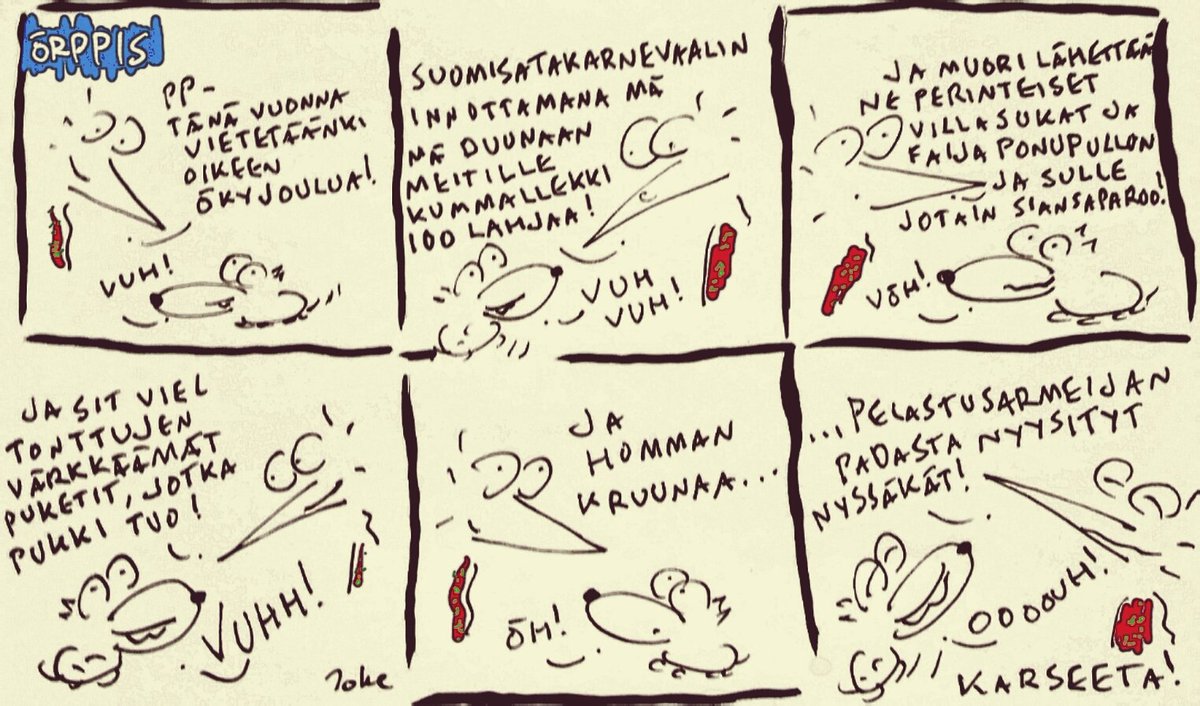 ÖRPPIS
PP-
TÄNÄ VUONNA
VIETETÄÄNKI
OIKEEN
ÖKYJOULUA!
VUH!
SUOMISATAKARNEVAALIN
INNOTTAMANA MÄ
MÄ DUUNAAN
MEITILLE
KUMMALLEKKI
100 LAHJAA!
VUH
VUH!
JA MUORI LÄHETTÄÄ
NE PERINTEISET
VILLASUKAT JA
FAIJA PONUPULLON
JA SULLE
JOTAIN SIANSAPAROO!
VÖH!
JA SIT VIEL
TONTTUJEN
VÄRKKÄÄMÄT
PUKETIT, JOTKA
PUKKI TUO!
VUHH!
Joke
JA
HOMMAN
KRUUNAA...
ÖH!
...PELASTUSARMEIJAN
PADASTA NYYSITYT
NYSSÄKÄT!
OOOOUH!
KARSEETA!